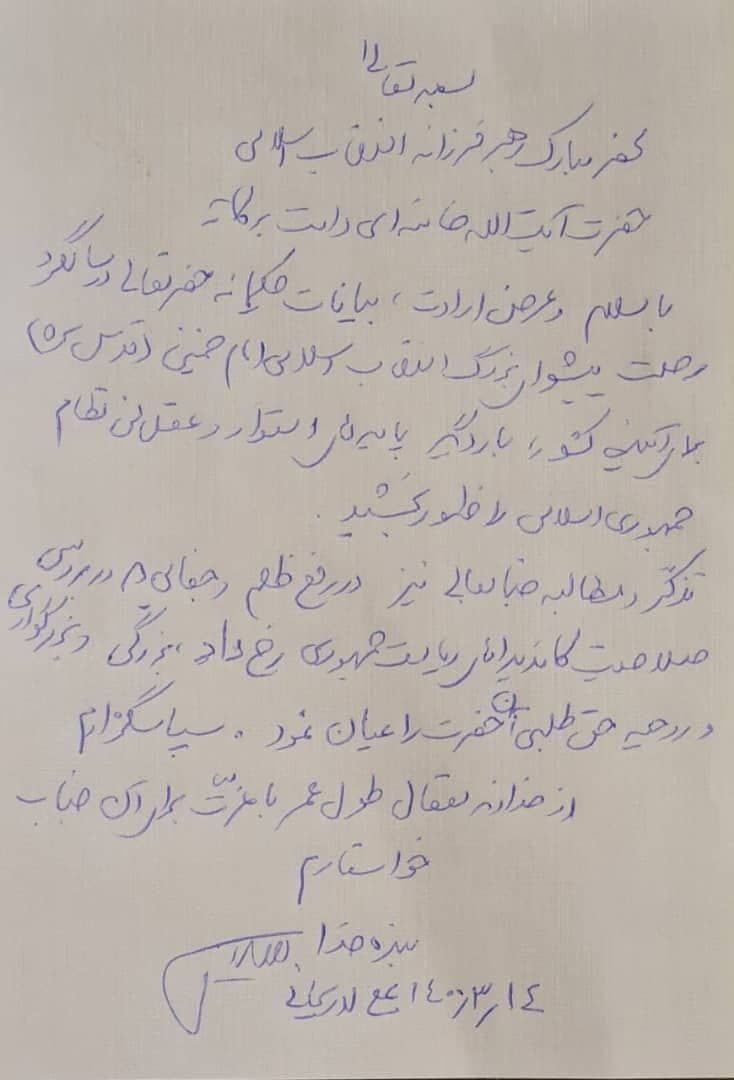 بسمه تعالی
محضر مبارک رهبر فرزانه انقلاب اسلامی
حضرت آیت الله خامنه ای دامت برکاته
با سلام و عرض ارادت، بیانات حکیمانه حضرتعالی در سالگرد
رحلت پیشوای بزرگ انقلاب اسلامی امام خمینی (قدس سره)
برای آتیه کشور، بار دیگر پایه های استوار و عقلانی نظام
جمهوری اسلامی را ظهور بخشید.
تذکّر و مطالبه جنابعالی نیز در رفع ظلم و جفایی که در بررسی
صلاحیت کاندیداهای ریاست جمهوری رخ داد، بزرگی و بزرگواری
و روحیه حق طلبی آن حضرت را عیان نمود. سپاسگزارم
از خداوند متعال طول عمر با عزّت برای آن جناب
خواستارم
بنده خدا
۱۴۰۰/۳/۱۴ علی لاریجانی